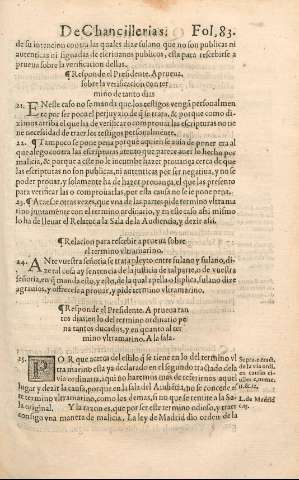 De Chancillerias. Fol. 83.
de su intencion contra las quales dize fulano que no son publicas ni
autenticas ni signadas de escriuanos publicos, esta para rescebirse a
prueua sobre la verificacion dellas.
¶ Responde el Presidente. A prueua,
sobre la verificacion con ter
mino de tanto dias
21. EN este caso no se manda que los testigos vengã personalmen
te por ser poco el perjuyzio de q̃ se trata, & porque como di-
ximos arriba el que ha de verificar o comprouar las escripturas no tie
ne necessidad de traer los testigos personalmente.
22. ¶ Tampoco se pone pena porque quien se auia de poner era al
que alego contra las escripturas atento que parece auer lo hecho por
malicia, & porque a este no le incumbe hazer prouança cerca de que
las escripturas no son publicas, ni autenticas por ser negatiua, y no se
poder prouar, y solamente ha de hazer prouança, el que las presento
para verificar las o comprouarlas, por esta causa no se le pone pena.
23. ¶ Acaesce otras vezes, que vna de las partes pide termino vltrama
rino juntamente con el termino ordinario, y en este caso assi mismo
lo ha de lleuar el Relator a la Sala de la Audiencia, y dezir assi.
¶ Relacion para rescebir a prueua sobre
el termino vltramarino.
24. ANte vuestra señoria se trata pleyto entre fulano y fulano, di-
ze tal cosa ay sentencia de la justicia de tal parte, o de vuestra
señoria, en q̃ manda esto, y esto, de la qual apello o suplica, fulano dize
agrauios, y ofrecese a prouar, y pide termino vltramarino.
¶ Responde el Presidente. A prueua tan
tos dias en lo del termino ordinario pe
na tantos ducados, y en quanto al ter
mino vltramarino. A la sala.
25. POR que acerca del estilo q̃ se tiene en lo del termino vl
tramarino esta ya declarado en el segundo tractado de la
via ordinaria, aqui no haremos mas de referirnos aquel
lugar y dezir la causa, porque en la sala del Audiẽcia, no se concede es
te termino vltramarino, como los demas, si no que se remite a la Sa-
la original. Y la razon es, que por ser este termino odioso, y traer
consigo vna manera de malicia, La ley de Madrid dio orden de la
Supra 2. tract.
de la via ordi.
L. de Madrid